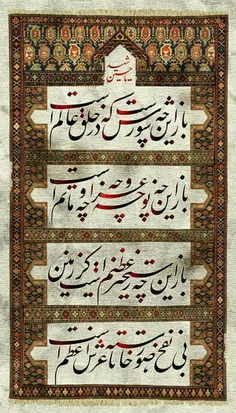 یا حسین شهید
باز این چه شورش است که در خلق عالم است
باز این چه نوحه و چه عزا و چه ماتم است
باز این چه رستخیز عظیم است کز زمین
بی نفخ صور خاسته تا عرش اعظم است